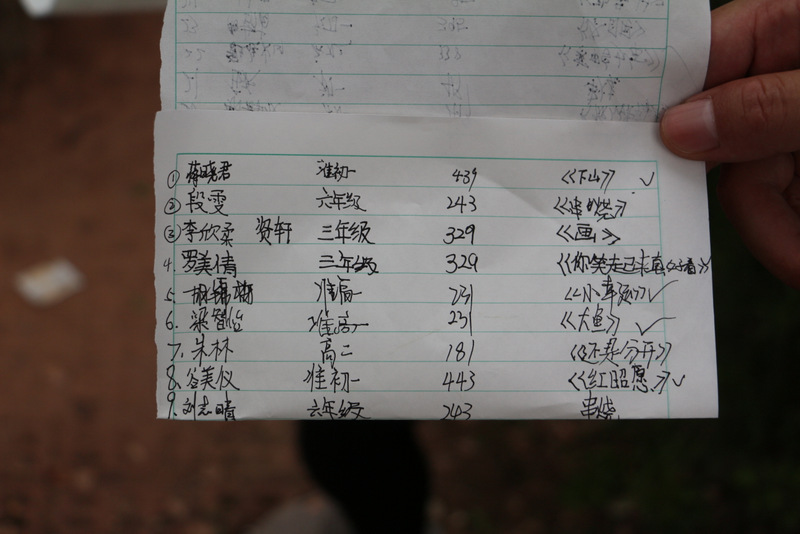 ① 蒋晓君 准初一 439 《下山》 ✓
② 段雯 六年级 243 《串烧》
③ 李欣柔 贤轩 三年级 329 《画》
4. 罗美倩 三年级 329 《你笑起来真好看》
5. 准高一 231 《小幸运》 ✓
6. 梁智怡 准高一 231 《大鱼》 ✓
7. 朱林 高二 181 《还是分开》
8. 谷美仪 准初一 443 《红昭愿》 ✓
9. 刘志晴 六年级 243 串烧